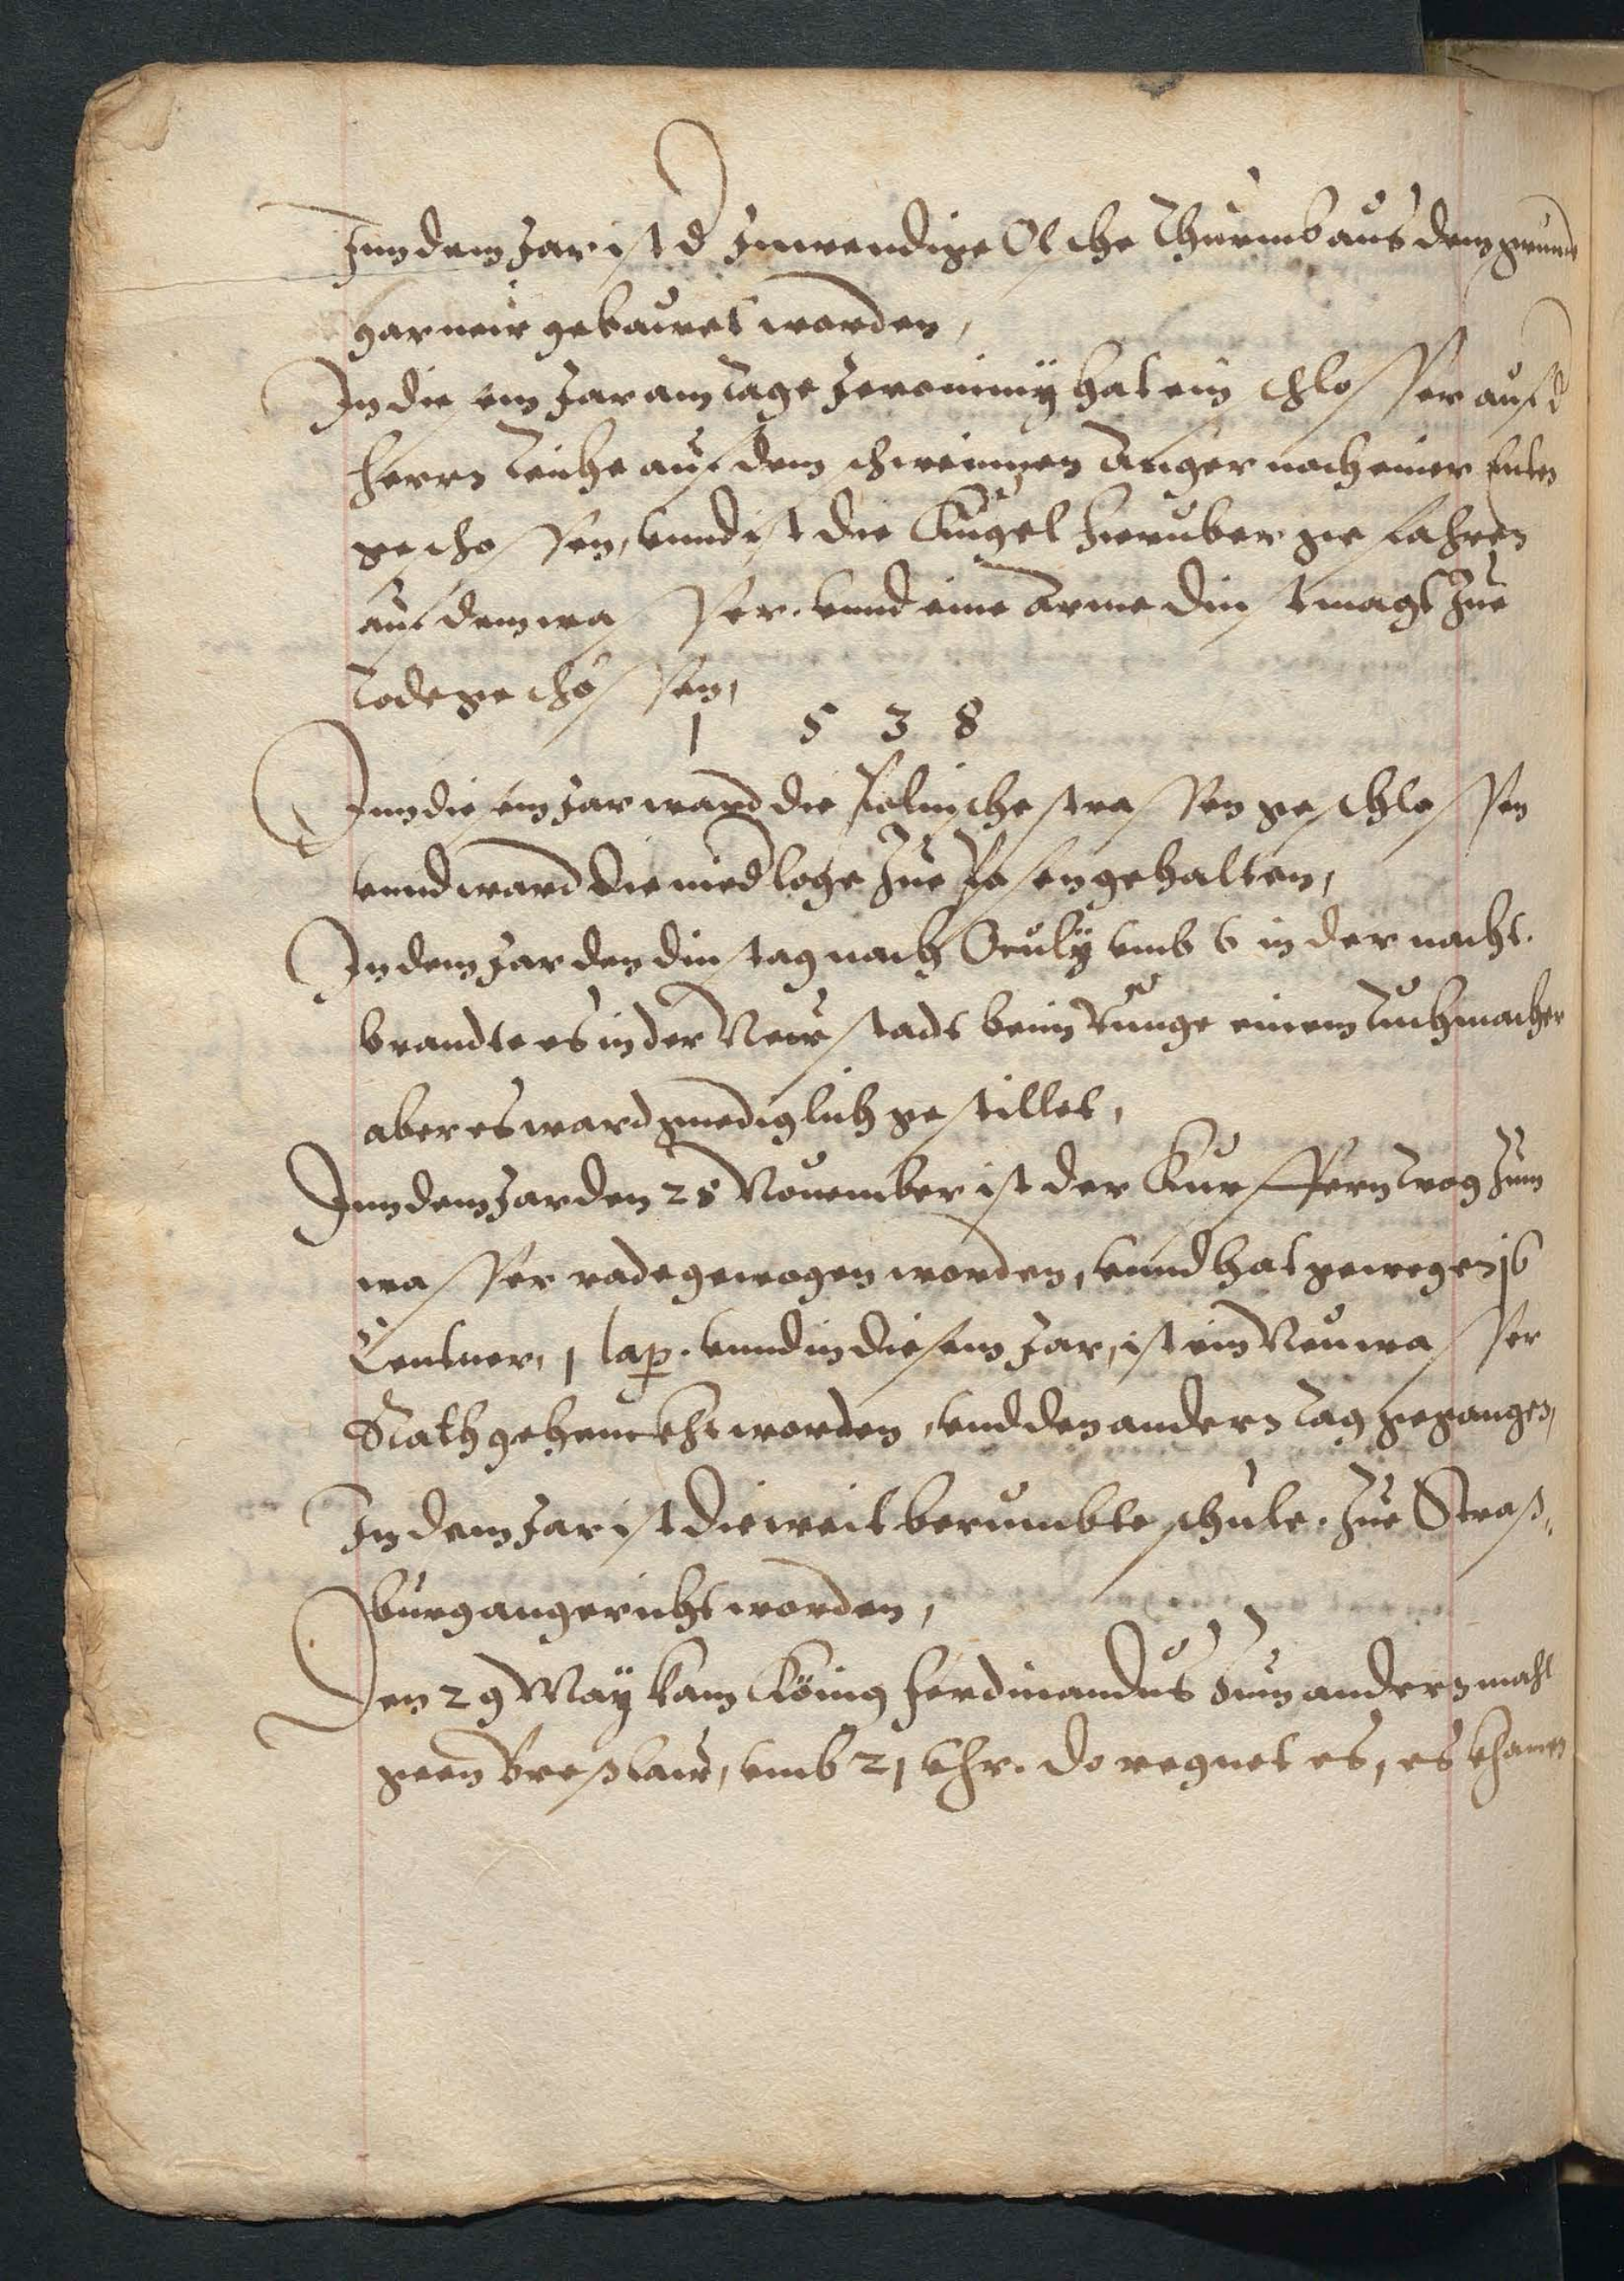 Inn dem Jar ist d Inwendige Olsche Thurmb aus dem grunde
gar neir gebauet worden,
In diesem Jar am tage Jeronimÿ hat ein schlosser auf d
herrn teiche auf dem schweinnen Anger nach einer Enten
geschossen, vnnd ist die Kugel hinuber gefahren
auf dem wasser. vnnd eine Arme dinstmagt zue
tode geschossen,
1 5 3 8
Inn diesem Jar ward die Polnische strassen geschlossen
vnnd ward die niedloge zue Posen gehalten,
In dem Jar den dinstag nach Oculÿ vmb 6 in der nacht.
brandte es in der Neustadt beim Runge einem tuchmacher
aber es ward gnediglich gestillet,
Inn dem Jar den 28 Nouember ist der Kupffern trog zum
wasser rade gewogen worden, vnnd hat gewogen 16
Centner, 1 lap. vnnd in diesem Jar, ist ein Neu wasser
Rath gehenckht worden, vnd den andern tag gegangen,
In dem Jar ist die weit berumbte schule. zue Straß,
burg angericht worden,
Den 29 Maÿ kam König Ferdinandus zum andern mahl
geen Breßlaw, vmb 21 vhr. do regnet es, es khamen